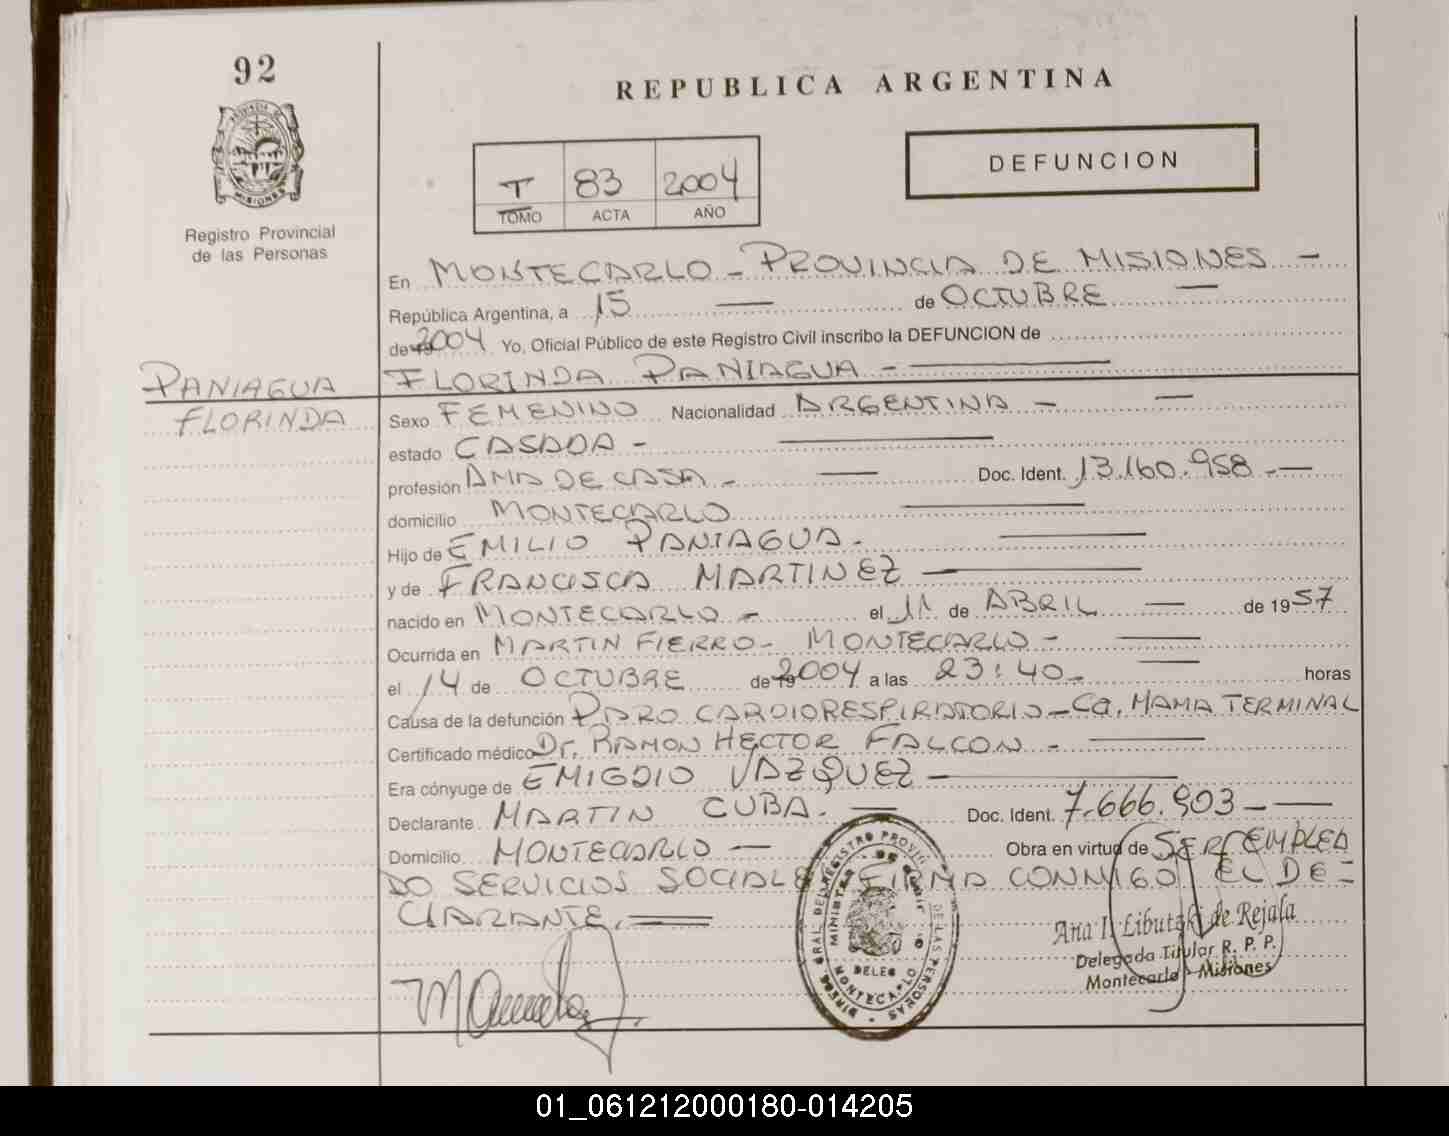 92
REPUBLICA ARGENTINA
PROVINCIA DE
MISIONES
Registro Provincial
de las Personas
T 83 2004
TOMO ACTA AÑO
DEFUNCION
En MONTECARLO - PROVINCIA DE MISIONES -
República Argentina, a 15 de OCTUBRE
de 19 2004 Yo, Oficial Público de este Registro Civil inscribo la DEFUNCION de
PANIAGUA FLORINDA PANIAGUA -
FLORINDA Sexo FEMENINO Nacionalidad ARGENTINA -
estado CASADA -
profesión AMA DE CASA - Doc. Ident. 13.160.958 -
domicilio MONTECARLO
Hijo de EMILIO PANIAGUA.
y de FRANCISCA MARTINEZ
nacido en MONTECARLO - el 11 de ABRIL de 1957
Ocurrida en MARTIN FIERRO - MONTECARLO -
el 14 de OCTUBRE de 19 2004 a las 23:40 - horas
Causa de la defunción PARO CARDIORESPIRATORIO - Ca. MAMA TERMINAL
Certificado médico Dr. RAMON HECTOR FALCON -
Era cónyuge de EMIGDIO VAZQUEZ -
Declarante MARTIN CUBA. Doc. Ident. 7.666.903 -
Domicilio MONTECARLO Obra en virtud de SER EMPLEA
DO SERVICIOS SOCIALES FIRMA CONMIGO EL DE=
CLARANTE.
DIREC. GRAL. DEL REGISTRO PROVIN. DE LAS PERSONAS
DELEG
MONTECARLO
Ana I. Libutzki de Rejala
Delegada Titular R. P. P.
Montecarlo - Misiones
01_061212000180-014205